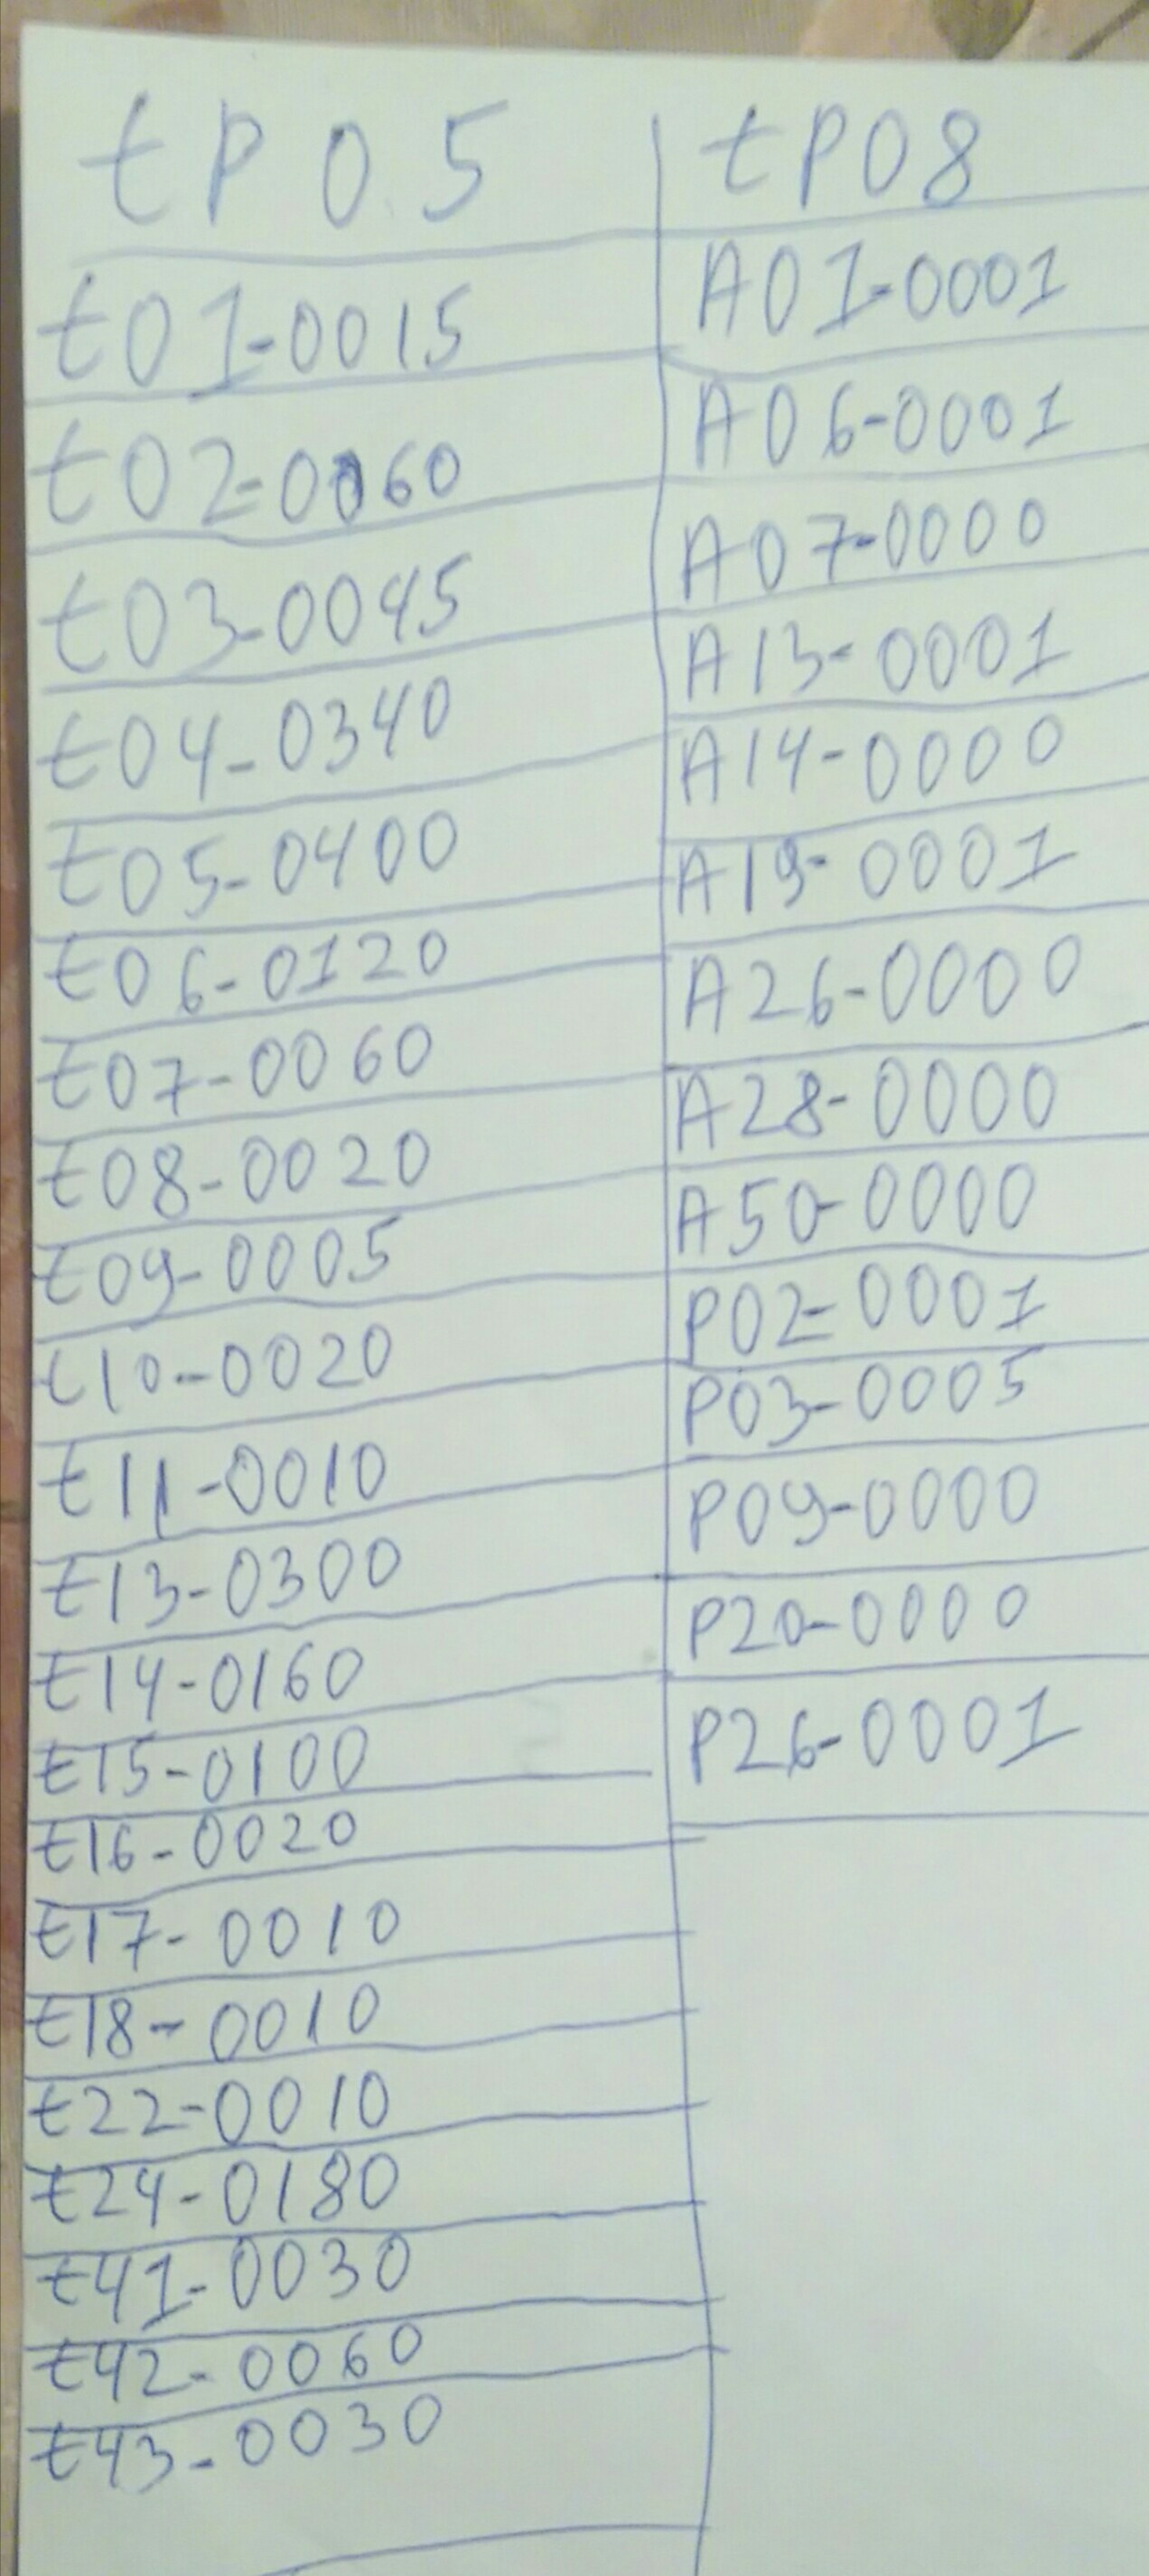 tP05
t01-0015
t02-0060
t03-0045
t04-0340
t05-0400
t06-0120
t07-0060
t08-0020
t09-0005
t10-0020
t11-0010
t13-0300
t14-0160
t15-0100
t16-0020
t17-0010
t18-0010
t22-0010
t24-0180
t41-0030
t42-0060
t43-0030
tP08
A01-0001
A06-0001
A07-0000
A13-0001
A14-0000
A19-0001
A26-0000
A28-0000
A50-0000
P02-0001
P03-0005
P09-0000
P20-0000
P26-0001